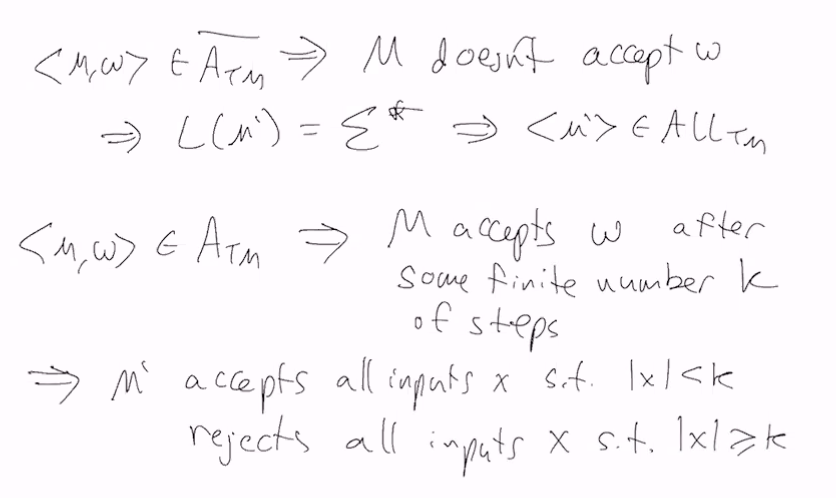 <M,w> ∈ \overline{A_{TM}} ⇒ M doesn't accept w
⇒ L(M') = Σ* ⇒ <M'> ∈ ALL_{TM}
<M,w> ∈ A_{TM} ⇒ M accepts w after
some finite number k
of steps
⇒ M' accepts all inputs x s.t. |x|<k
rejects all inputs x s.t. |x|⩾k